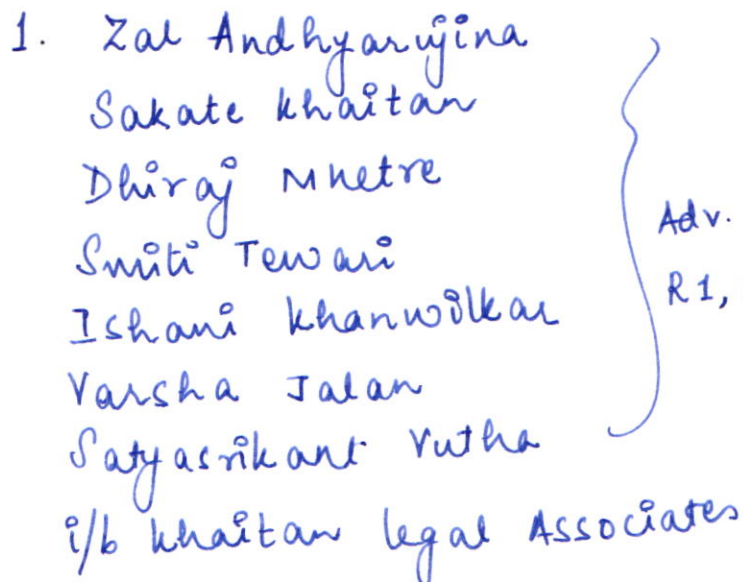 1. Zal Andhyarujina
Sakate Khaitan
Dhiraj Mhetre
Smiti Tewari
Ishani Khanwilkar
Varsha Jalan
Satyasrikant Vutha
i/b Khaitan Legal Associates
Adv.
R1,